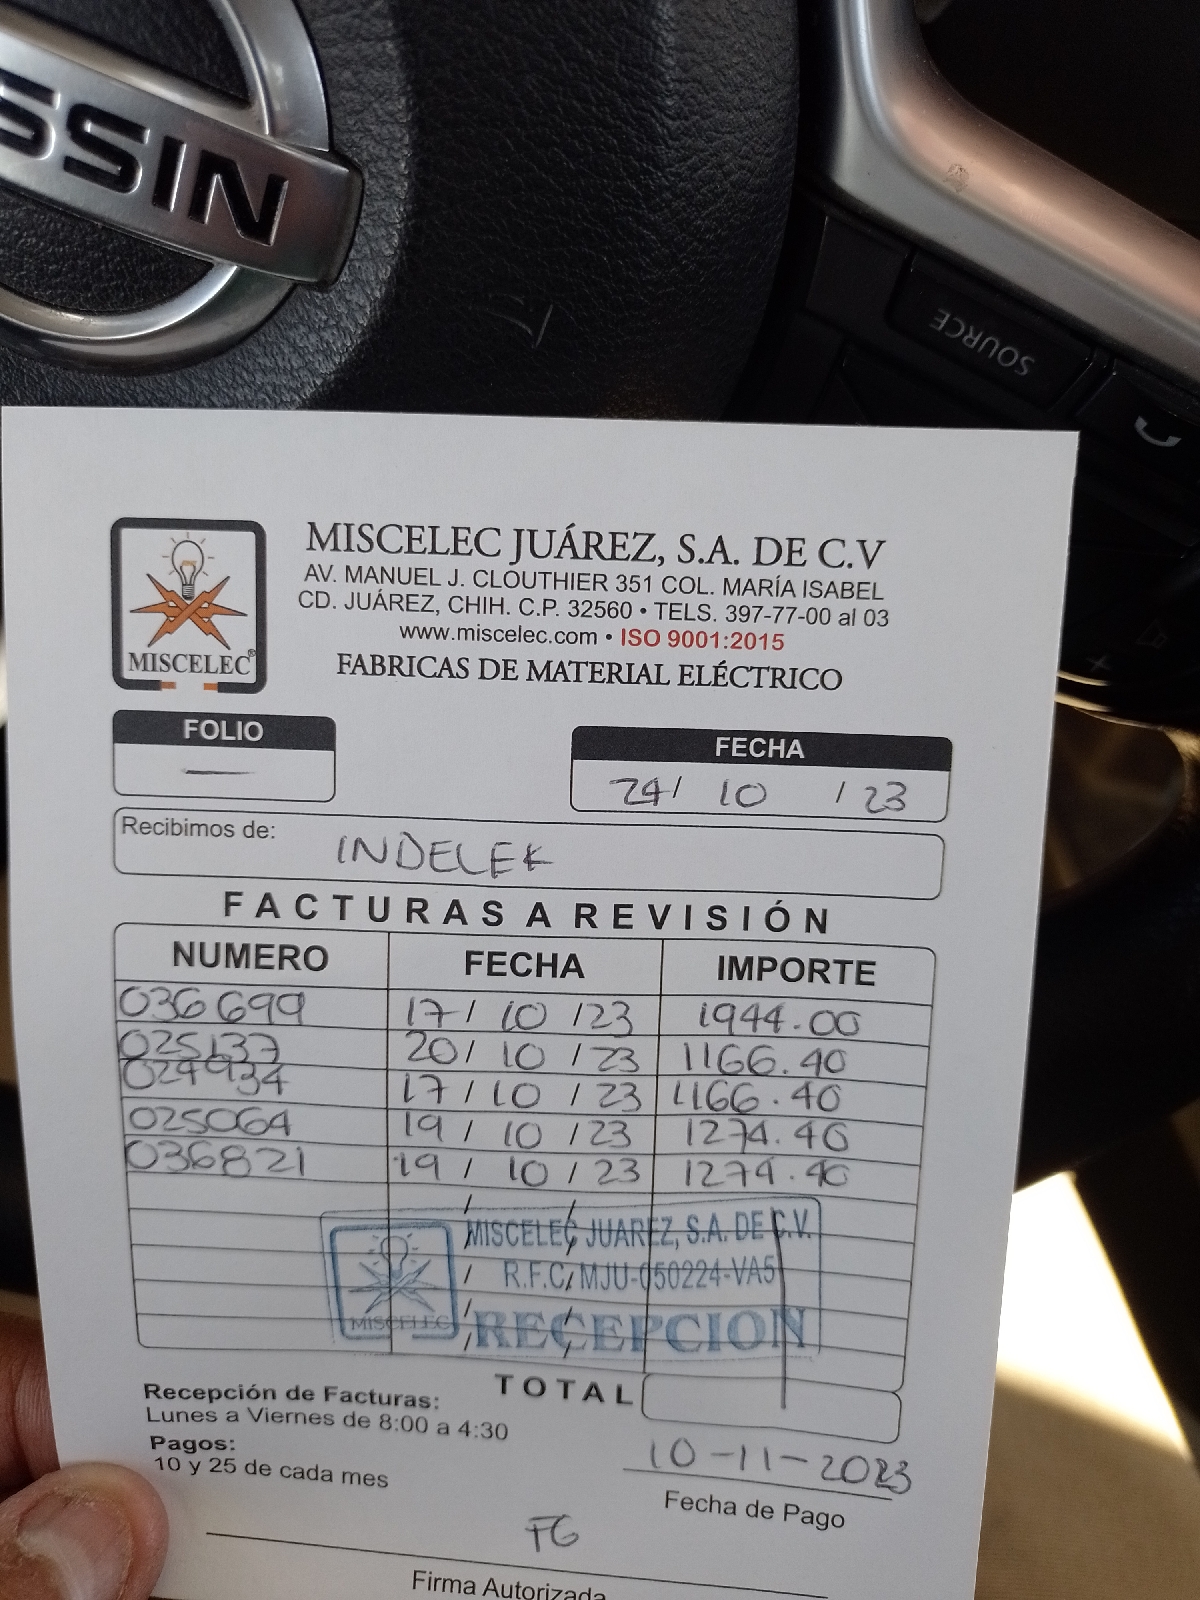 SSIN
SOURCE
MISCELEC®
MISCELEC JUÁREZ, S.A. DE C.V
AV. MANUEL J. CLOUTHIER 351 COL. MARÍA ISABEL
CD. JUÁREZ, CHIH. C.P. 32560 • TELS. 397-77-00 al 03
www.miscelec.com • ISO 9001:2015
FABRICAS DE MATERIAL ELÉCTRICO
FOLIO
—
FECHA
24/ 10 / 23
Recibimos de: INDELEK
FACTURAS A REVISIÓN
NUMERO FECHA IMPORTE
036699 17/ 10 /23 1944.00
025137 20/ 10 /23 1166.40
024934 17/ 10 /23 1166.40
025064 19/ 10 /23 1274.40
036821 19/ 10 /23 1274.40
MISCELEC JUAREZ, S.A. DE C.V.
R.F.C. MJU-050224-VA5
MISCELEC RECEPCION
TOTAL
Recepción de Facturas:
Lunes a Viernes de 8:00 a 4:30
Pagos:
10 y 25 de cada mes
10-11-2023
Fecha de Pago
FG
Firma Autorizada